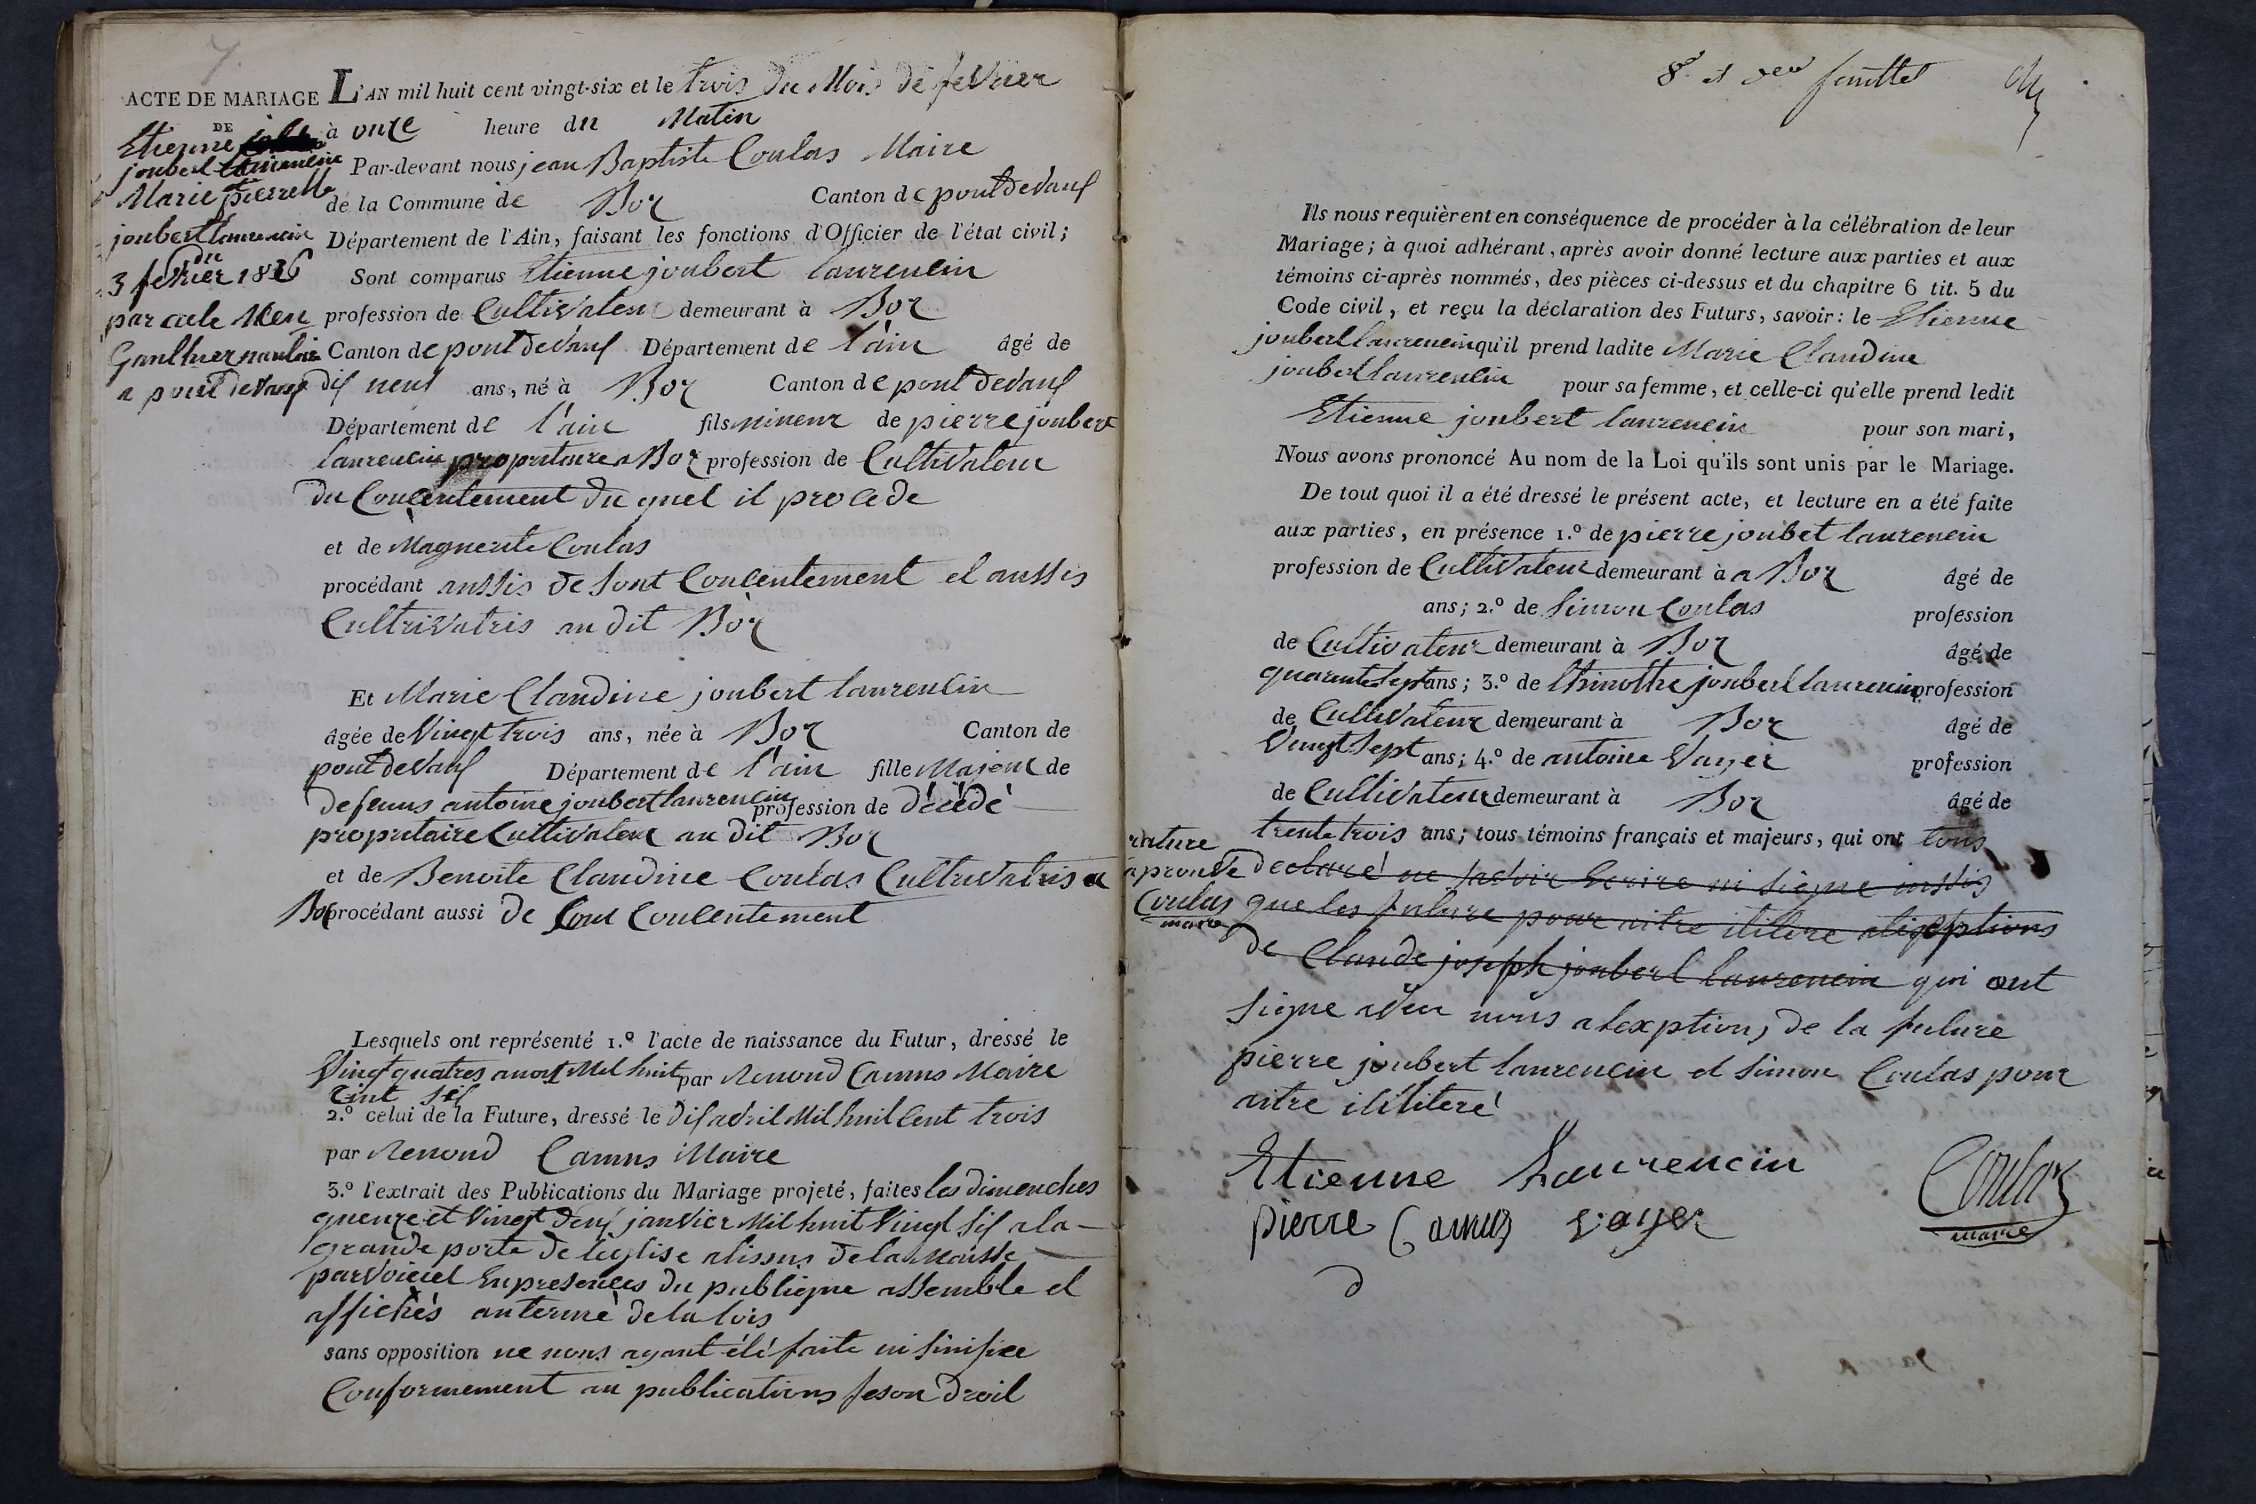 7.
ACTE DE MARIAGE
DE
Etienne
joubert laurencin
et
Marie pierrette
joubert laurencin
du
3 fevrier 1826
par acte
Gauthier notaire
a pont devaux
L'AN mil huit cent vingt-six et le trois du Mois de fevrier
à onze heure du Matin
Par-devant nous jean Baptiste Coulas Maire
de la Commune de Boz Canton de pont devaux
Département de l'Ain, faisant les fonctions d'Officier de l'état civil;
Sont comparus Etienne joubert laurencin
profession de Cultivateur demeurant à Boz
Canton de pont devaux Département de l'ain âgé de
dix neuf ans, né à Boz Canton de pont devaux
Département de l'ain fils mineur de pierre joubert
laurencin propritaire a Boz profession de Cultivateur
du Concentement du quel il procede
et de Magnerite Coulas
procédant aussis de sont Concentement et aussis
Cultrivatris au dit Boz
Et Marie Claudine joubert laurencin
âgée de Vingt trois ans, née à Boz Canton de
pont devaux Département de l'ain fille Majeur de
defeuns antoine joubert laurencin profession de décédé
propritaire Cultivateur au dit Boz
et de Benoite Claudine Coulas Cultrivatris a
Boz procédant aussi de sont Concentement
Lesquels ont représenté 1.º l'acte de naissance du Futur, dressé le
Vingt quatres aout Mil huit par Renoud Camus Maire
Cint six
2.º celui de la Future, dressé le dix avril Mil huit Cent trois
par Renoud Camus Maire
3.º l'extrait des Publications du Mariage projeté, faites les dimenches
queneze et Vingt deux janvier Mil huit Vingt six a la
grande porte de leglise alissus de la Maisse
par voieiet En presences du publieque assemble et
affichés au terme de la lois
sans opposition ne nous ayant été faite ni sinifiee
Conformement au publications feson droit
8e et feuillet
Ils nous requièrent en conséquence de procéder à la célébration de leur
Mariage; à quoi adhérant, après avoir donné lecture aux parties et aux
témoins ci-après nommés, des pièces ci-dessus et du chapitre 6 tit. 5 du
Code civil, et reçu la déclaration des Futurs, savoir: le Etienne
joubert laurencin qu'il prend ladite Marie Claudine
joubert laurencin pour sa femme, et celle-ci qu'elle prend ledit
Etienne joubert laurencin pour son mari,
Nous avons prononcé Au nom de la Loi qu'ils sont unis par le Mariage.
De tout quoi il a été dressé le présent acte, et lecture en a été faite
aux parties, en présence 1.º de pierre joubet laurencin
profession de Cultivateur demeurant à a Boz âgé de
ans; 2.º de Simon Coulas profession
de Cultivateur demeurant à Boz âgé de
quarente sept ans; 3.º de thimothe joubert laurencin profession
de Cultivateur demeurant à Boz âgé de
Vingt sept ans; 4.º de antoine Vayer profession
de Cultivateur demeurant à Boz âgé de
trente trois ans; tous témoins français et majeurs, qui ont tous
rature
aprouvé
Coulas
maire
declaré ne savoir Ecrire ni signe aussis
que les future pour aitre ilitere
de Claude joseph joubert laurencin qui ont
signe avec nous alexption de la future
pierre joubert laurencin et simon Coulas pour
aitre ililiteré
Etienne Laurencin
pierre Camus vayer
Coulas
maire